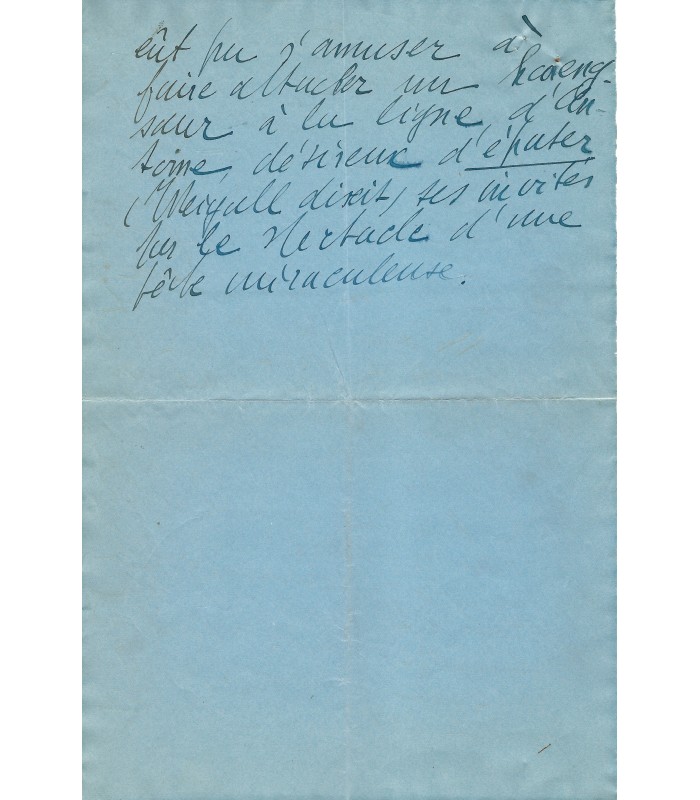 eût pu s'amuser à
faire attacher un hareng-
saur à la ligne d'An-
toine, désireux d'épater
(Weigall dixit) ses invités
par le spectacle d'une
pêche miraculeuse.